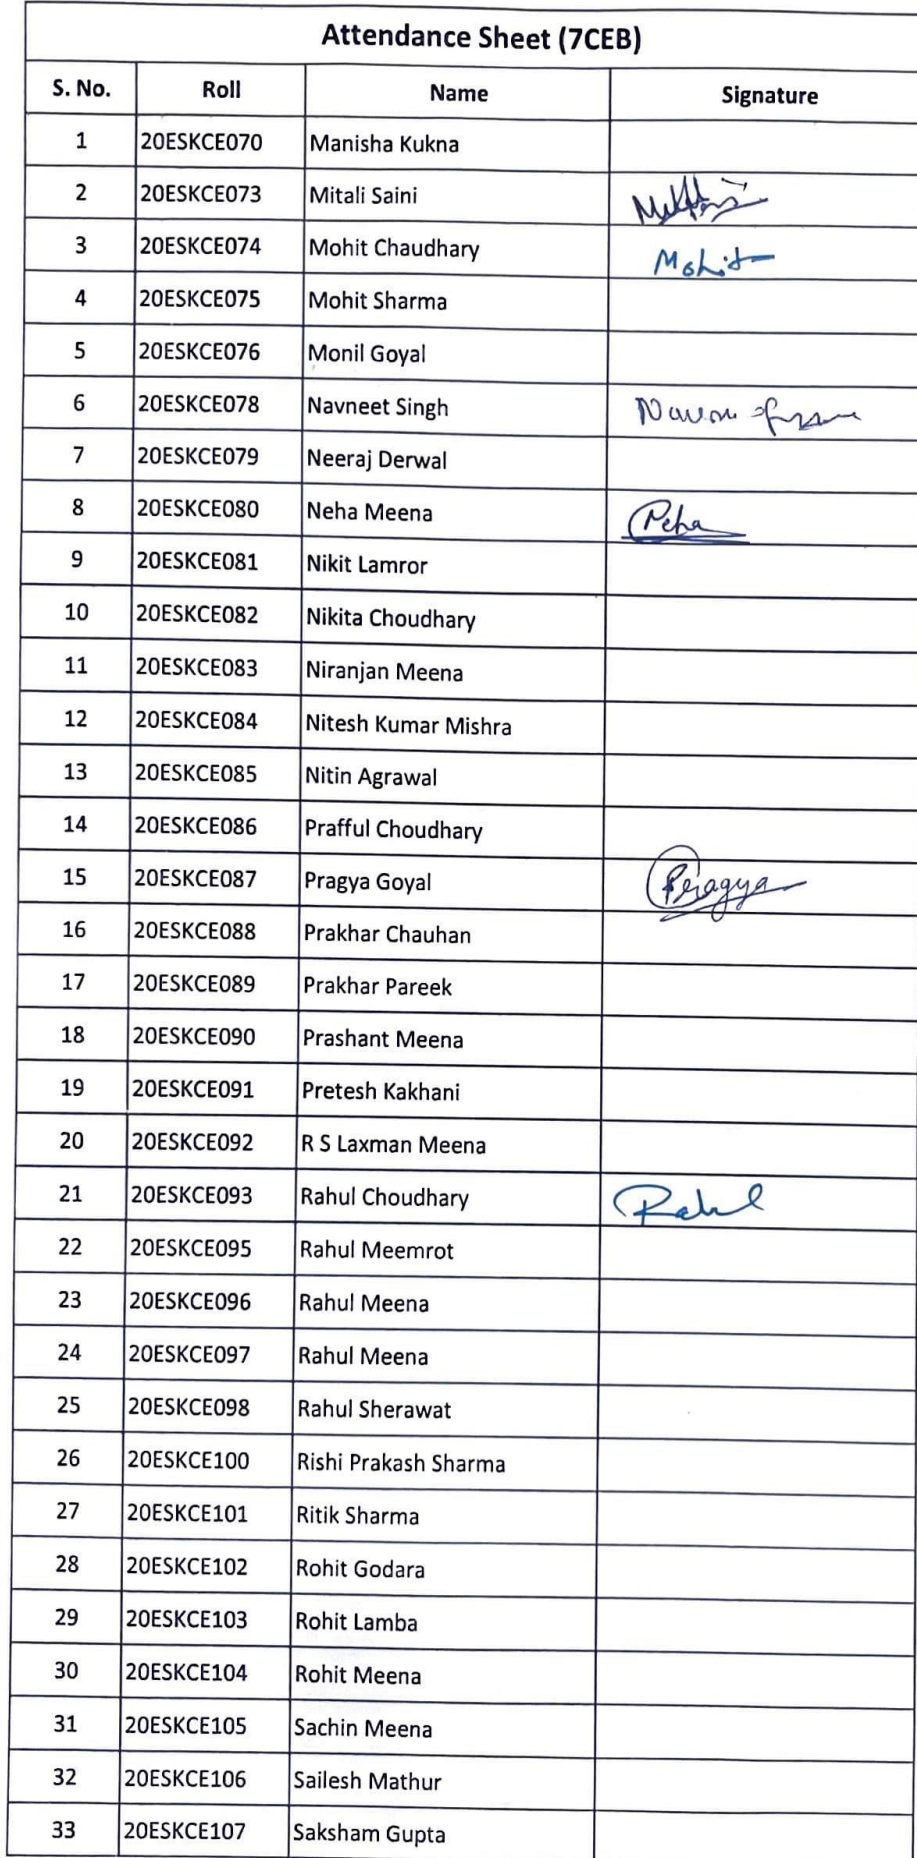 Attendance Sheet (7CEB)
S. No. Roll Name Signature
1 20ESKCE070 Manisha Kukna
2 20ESKCE073 Mitali Saini
3 20ESKCE074 Mohit Chaudhary Mohit
4 20ESKCE075 Mohit Sharma
5 20ESKCE076 Monil Goyal
6 20ESKCE078 Navneet Singh
7 20ESKCE079 Neeraj Derwal
8 20ESKCE080 Neha Meena Neha
9 20ESKCE081 Nikit Lamror
10 20ESKCE082 Nikita Choudhary
11 20ESKCE083 Niranjan Meena
12 20ESKCE084 Nitesh Kumar Mishra
13 20ESKCE085 Nitin Agrawal
14 20ESKCE086 Prafful Choudhary
15 20ESKCE087 Pragya Goyal Pragya
16 20ESKCE088 Prakhar Chauhan
17 20ESKCE089 Prakhar Pareek
18 20ESKCE090 Prashant Meena
19 20ESKCE091 Pretesh Kakhani
20 20ESKCE092 R S Laxman Meena
21 20ESKCE093 Rahul Choudhary Rahul
22 20ESKCE095 Rahul Meemrot
23 20ESKCE096 Rahul Meena
24 20ESKCE097 Rahul Meena
25 20ESKCE098 Rahul Sherawat
26 20ESKCE100 Rishi Prakash Sharma
27 20ESKCE101 Ritik Sharma
28 20ESKCE102 Rohit Godara
29 20ESKCE103 Rohit Lamba
30 20ESKCE104 Rohit Meena
31 20ESKCE105 Sachin Meena
32 20ESKCE106 Sailesh Mathur
33 20ESKCE107 Saksham Gupta